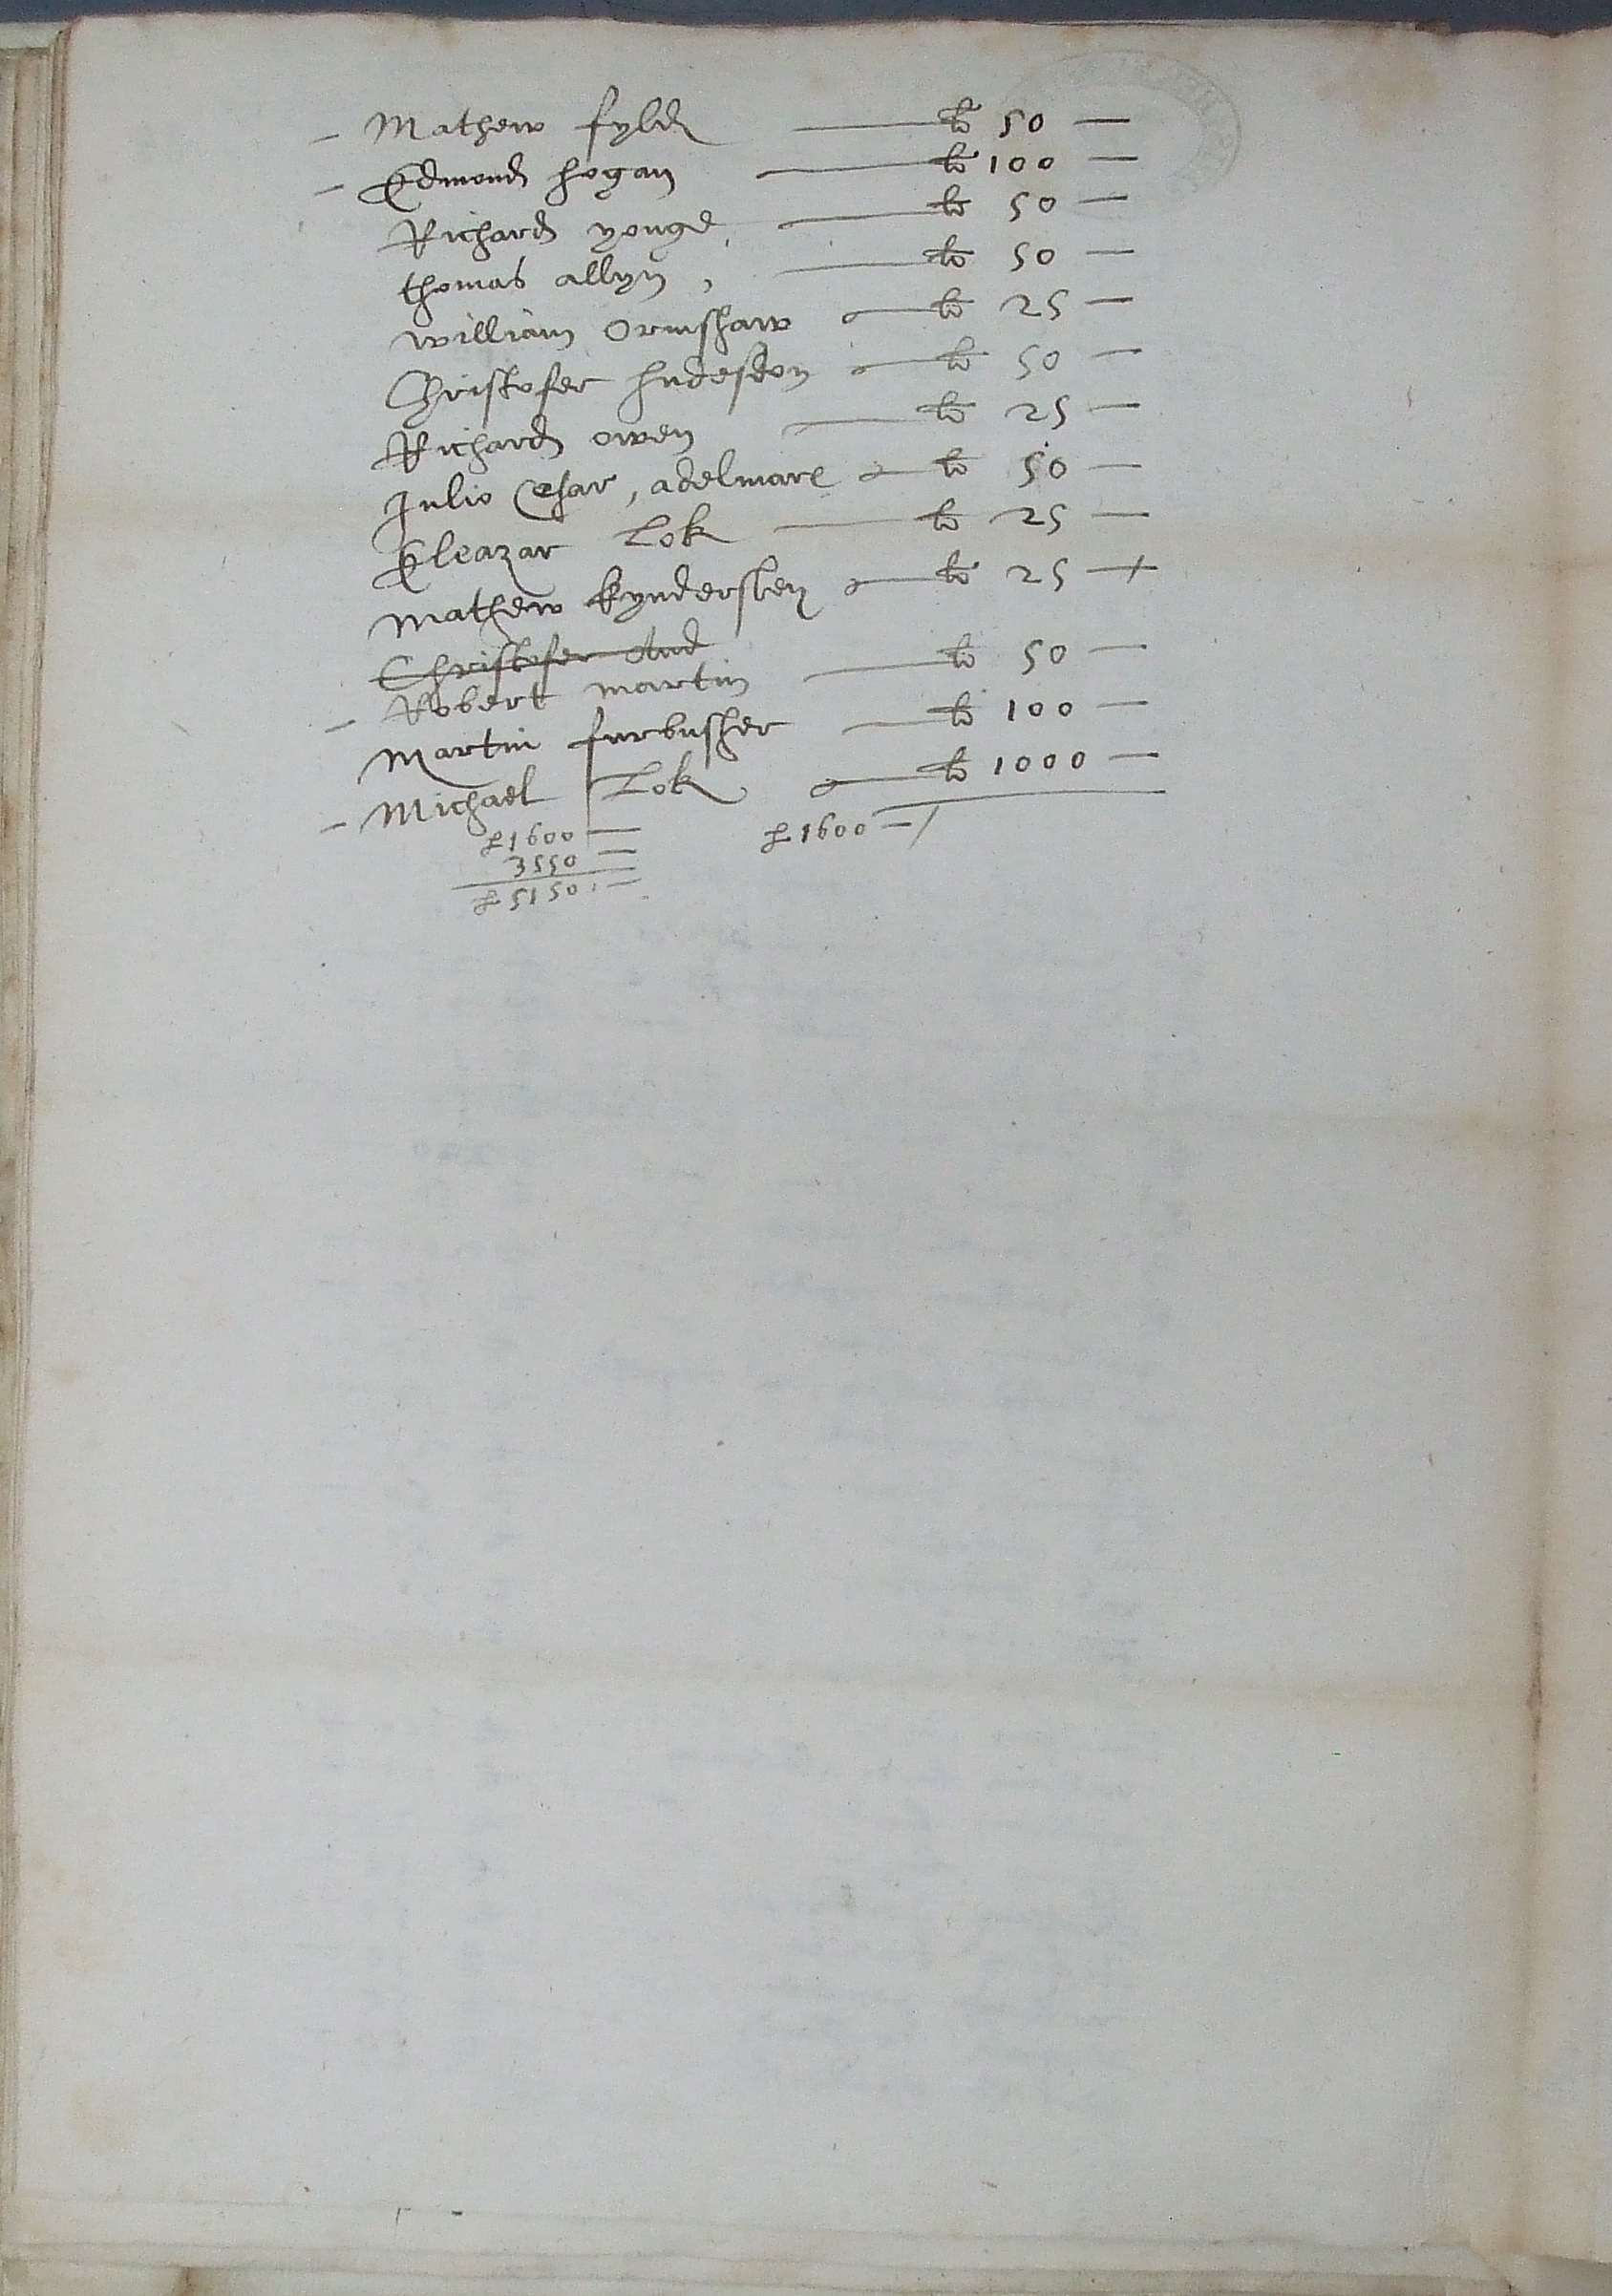 – Mathew fyld — li 50 —
– Edmond hogan — li 100 —
Richard yonge, — li 50 —
thomas allyn, — li 50 —
william Ormshaw — li 25 —
Christofer hudesdon — li 50 —
Richard owen — li 25 —
Julio Cesar, adelmare — li 50 —
Eleazar Lok — li 25 —
Mathew kyndersley — li 25 —
Christofer And
– Robert martin — li 50 —
Martin furbusher — li 100 —
– Michael Lok — li 1000 —
£ 1600 — £ 1600 —/
3550 —
£ 5150. —